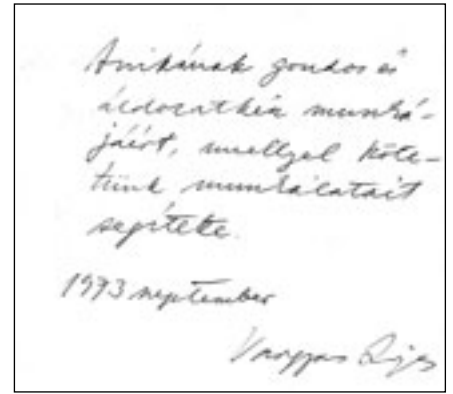 Anikának gondos és
áldozatkész munká-
jáért, mellyel köte-
tünk munkálatait
segítette.
1973 september
Vargyas Lajos